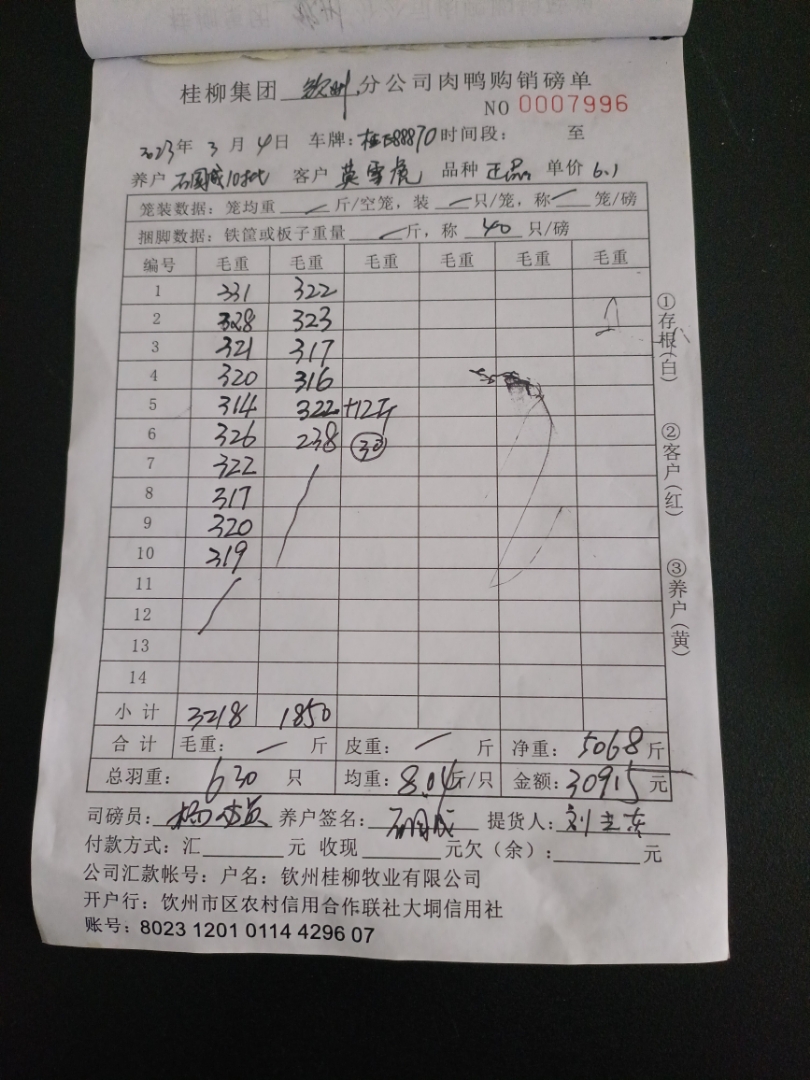 桂柳集团 钦州 分公司肉鸭购销磅单
NO 0007996
2023年 3 月 4日 车牌: 88870 时间段: 至
养户 石国成10批 客户 莫雪虎 品种 正品 单价 6.1
笼装数据: 笼均重 斤/空笼, 装 只/笼, 称 笼/磅
捆脚数据: 铁筐或板子重量 斤, 称 40 只/磅
编号 毛重 毛重 毛重 毛重 毛重 毛重
1 331 322
2 328 323
3 321 317
4 320 316
5 314 322 +12斤
6 326 238 30
7 322
8 317
9 320
10 319
11
12
13
14
小计 3218 1850
合计 毛重: 斤 皮重: 斤 净重: 5068 斤
总羽重: 630 只 均重: 8.04 斤/只 金额: 30915 元
司磅员: 养户签名: 石国成 提货人: 刘
付款方式: 汇 元 收现 元欠(余): 元
公司汇款帐号: 户名: 钦州桂柳牧业有限公司
开户行: 钦州市区农村信用合作联社大垌信用社
账号: 8023 1201 0114 4296 07
①存根(白)
②客户(红)
③养户(黄)